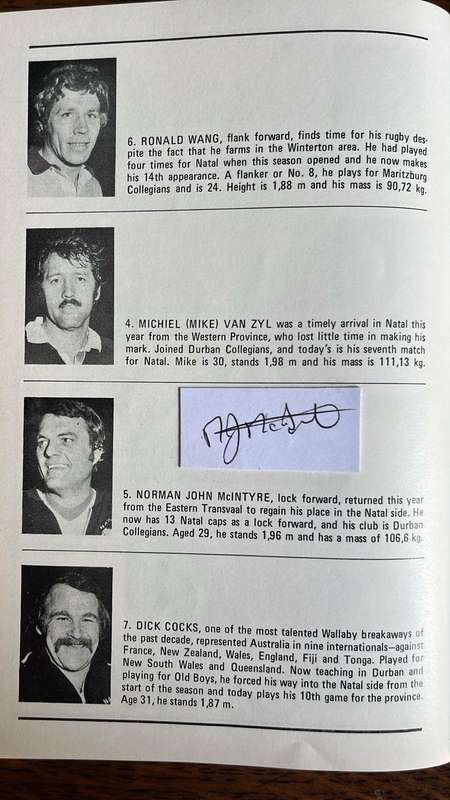 6. RONALD WANG, flank forward, finds time for his rugby des-
pite the fact that he farms in the Winterton area. He had played
four times for Natal when this season opened and he now makes
his 14th appearance. A flanker or No. 8, he plays for Maritzburg
Collegians and is 24. Height is 1,88 m and his mass is 90,72 kg.
4. MICHIEL (MIKE) VAN ZYL was a timely arrival in Natal this
year from the Western Province, who lost little time in making his
mark. Joined Durban Collegians, and today's is his seventh match
for Natal. Mike is 30, stands 1,98 m and his mass is 111,13 kg.
5. NORMAN JOHN McINTYRE, lock forward, returned this year
from the Eastern Transvaal to regain his place in the Natal side. He
now has 13 Natal caps as a lock forward, and his club is Durban
Collegians. Aged 29, he stands 1,96 m and has a mass of 106,6 kg.
7. DICK COCKS, one of the most talented Wallaby breakaways of
the past decade, represented Australia in nine internationals—against
France, New Zealand, Wales, England, Fiji and Tonga. Played for
New South Wales and Queensland. Now teaching in Durban and
playing for Old Boys, he forced his way into the Natal side from the
start of the season and today plays his 10th game for the province.
Age 31, he stands 1,87 m.